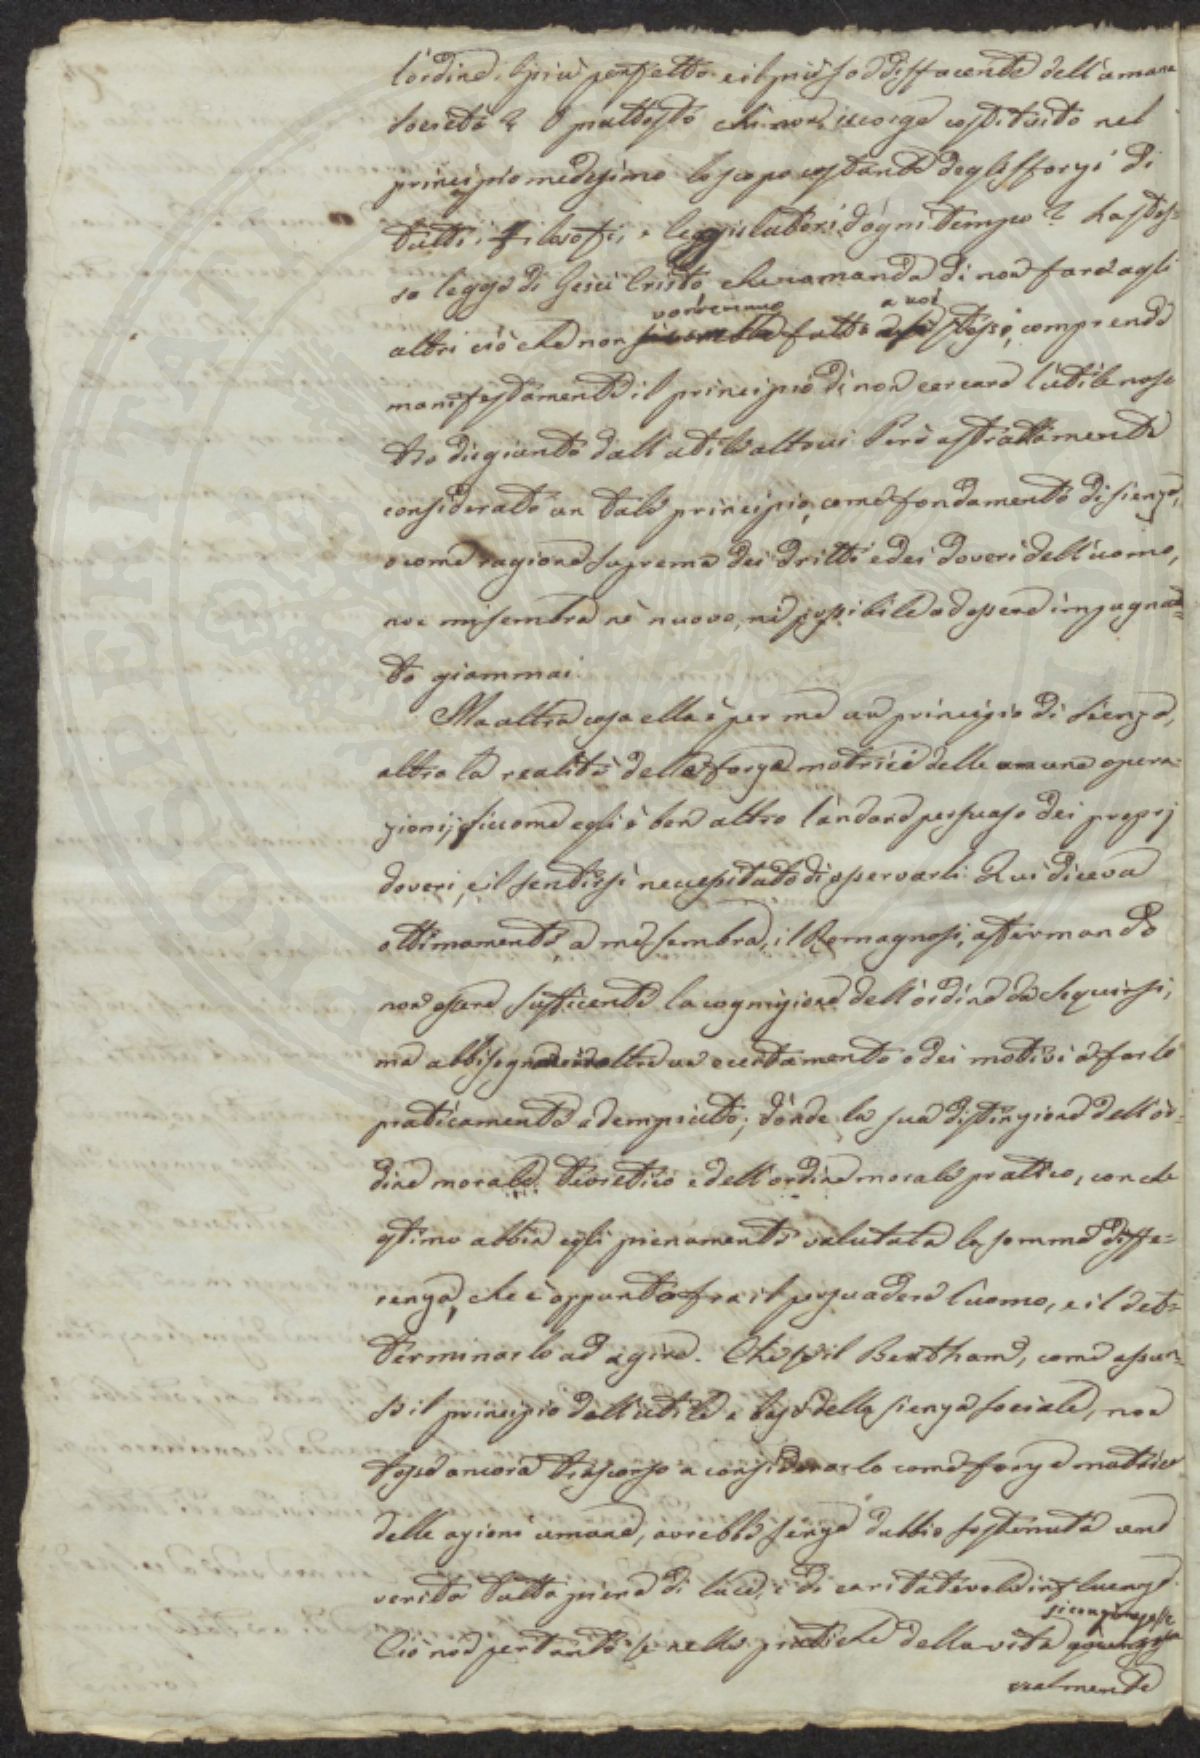 l'ordine il più perfetto e il più soddisfacente dell'umana
società? O piuttosto chi non iscorge costituito nel
principio medesimo lo scopo costante degli sforzi di
tutti i filosofi, e legislatori d'ogni tempo? La stes-
sa legge di Gesù Cristo che comanda di non fare agli
vorremmo a noi
altri ciò che non fatto stessi, comprende
manifestamente il principio di non cercare l'utile nos-
tro disgiunto dall'utile altrui. Però astrattamente
considerato un tale principio, come fondamento di sienza,
o come ragione suprema dei dritti e dei doveri dell'uomo,
non mi sembra nè nuovo, nè possibile ad essere impugna-
to giammai.
Ma altra cosa ella è per me un principio di sienza,
altra la realità della forza motrice delle umane opera-
zioni; siccome egli è ben altro l'andare persuaso dei proprj
doveri, e il sentirsi necessitato di osservarli. Qui diceva
ottimamente, a me sembra, il Romagnosi, affermando
non essere sufficiente la cognizione dell'ordine da seguirsi,
ma abbisognare inoltre un eccitamento o dei motivi a farlo
praticamente adempiuto; donde la sua distinzione dell'or-
dine morale teoretico e dell'ordine morale pratico, con che
stimo abbia egli pienamente valutata la somma diffe-
renza, che è appunto fra il persuadere l'uomo, e il det-
terminarlo ad agire. Che se il Bentham, come assun-
se il principio dell'utile a base della sienza sociale, non
fosse ancora trascorso a considerarlo come forza motrice
delle azioni umane, avrebbe senza dubbio sostenuta una
verità tutta piena di luce, e di caritatevole influenza.
si congiungesse
Ciò non pertanto se nelle pratiche della vita
realmente